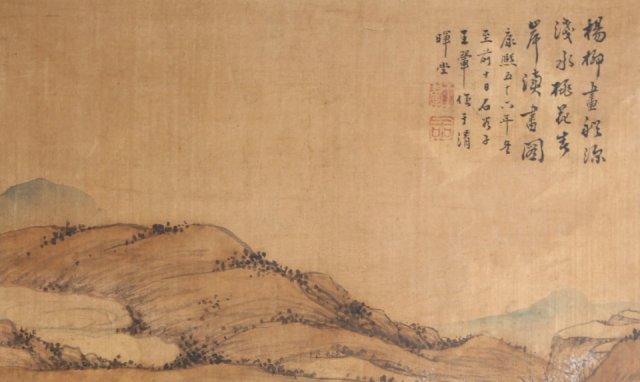 楊柳畫船深
淺水桃花春
岸讀書圖
康熙五十六年冬
至前十日石谷子
王翬作于清
暉堂